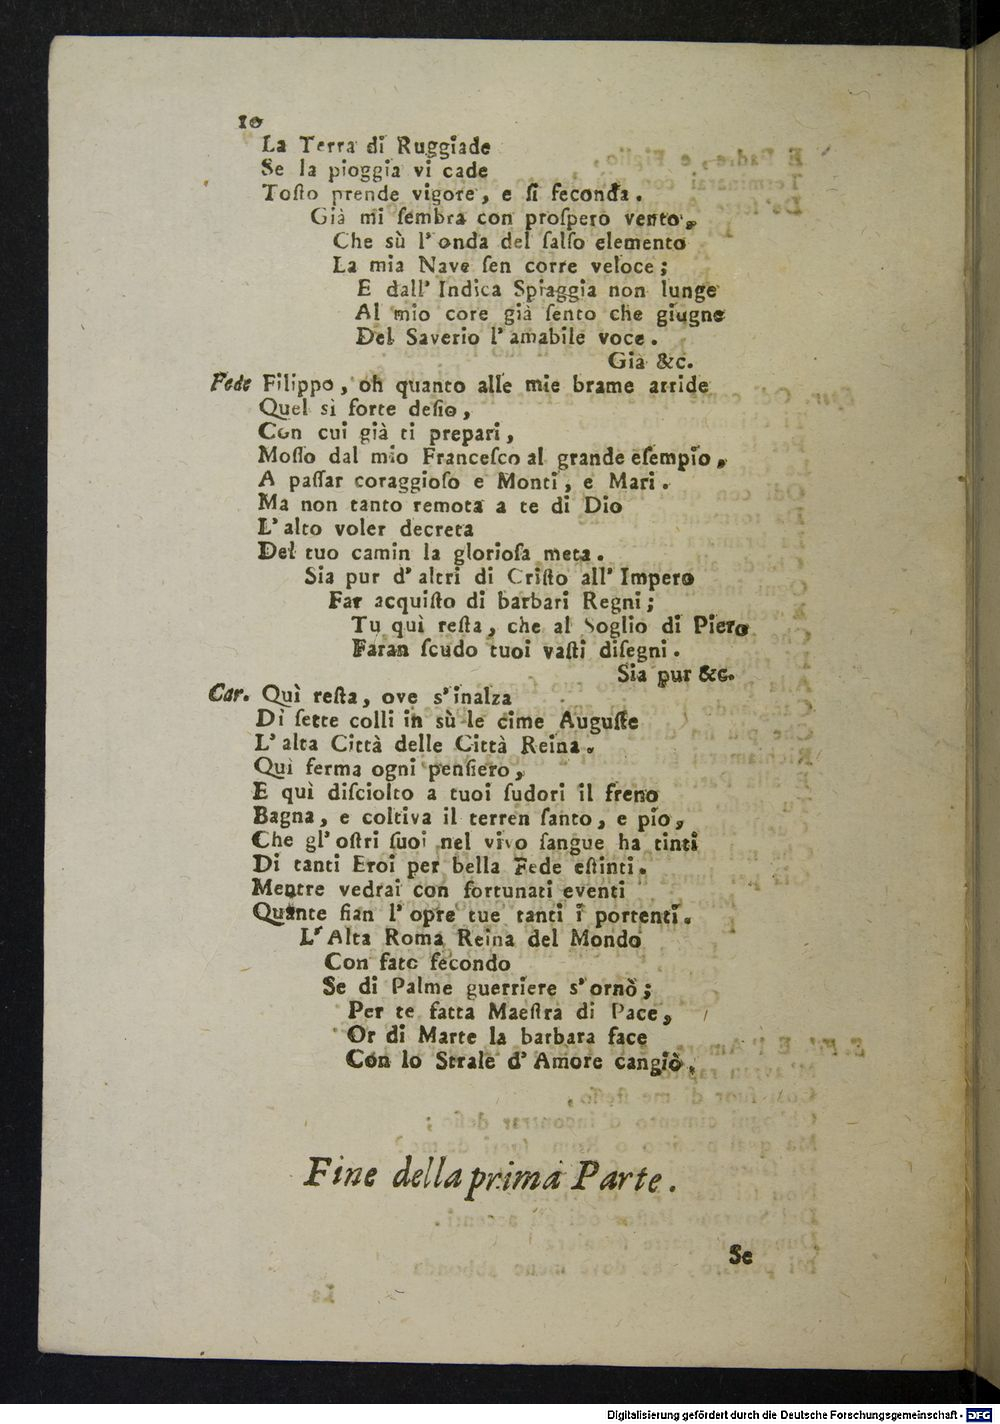 10
La Terra di Ruggiade
Se la pioggia vi cade
Toſto prende vigore, e ſi feconda.
Già mi ſembra con proſpero vento,
Che sù l'onda del ſalſo elemento
La mia Nave ſen corre veloce;
E dall'Indica Spiaggia non lunge
Al mio core già ſento che giugne
Del Saverio l'amabile voce.
Gia &c.
Fede Filippo, oh quanto alle mie brame arride
Quel sì forte deſio,
Con cui già ti prepari,
Moſſo dal mio Franceſco al grande eſempio,
A paſſar coraggioſo e Monti, e Mari.
Ma non tanto remota a te di Dio
L'alto voler decreta
Del tuo camin la glorioſa meta.
Sia pur d'altri di Criſto all'Impero
Far acquiſto di barbari Regni;
Tu quì reſta, che al Soglio di Piero
Faran ſcudo tuoi vaſti diſegni.
Sia pur &c.
Car. Quì reſta, ove s'inalza
Di ſette colli in sù le cime Auguſte
L'alta Città delle Città Reina.
Quì ferma ogni penſiero,
E quì diſciolto a tuoi ſudori il freno
Bagna, e coltiva il terren ſanto, e pio,
Che gl'oſtri ſuoi nel vivo ſangue ha tinti
Di tanti Eroi per bella Fede eſtinti.
Mentre vedrai con fortunati eventi
Quante fian l'opre tue tanti i portenti.
L'Alta Roma Reina del Mondo
Con fato fecondo
Se di Palme guerriere s'ornò;
Per te fatta Maeſtra di Pace,
Or di Marte la barbara face
Con lo Strale d'Amore cangiò.
Fine della prima Parte.
Se
Digitalisierung gefördert durch die Deutsche Forschungsgemeinschaft - DFG